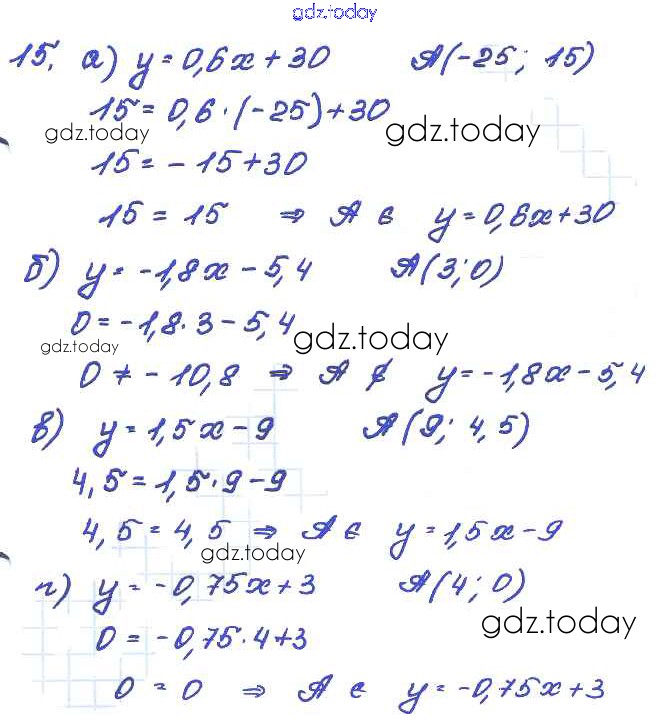 gdz.today
15. а) y = 0,6x + 30 A(-25; 15)
15 = 0,6 · (-25) + 30
gdz.today gdz.today
15 = - 15 + 30
15 = 15 ⇒ A ∈ y = 0,6x + 30
б) y = -1,8x - 5,4 A(3; 0)
0 = -1,8 · 3 - 5,4
gdz.today gdz.today
0 ≠ - 10,8 ⇒ A ∉ y = -1,8x - 5,4
в) y = 1,5x - 9 A(9; 4,5)
4,5 = 1,5 · 9 - 9
4,5 = 4,5 ⇒ A ∈ y = 1,5x - 9
gdz.today
г) y = -0,75x + 3 A(4; 0)
0 = -0,75 · 4 + 3
gdz.today
0 = 0 ⇒ A ∈ y = -0,75x + 3